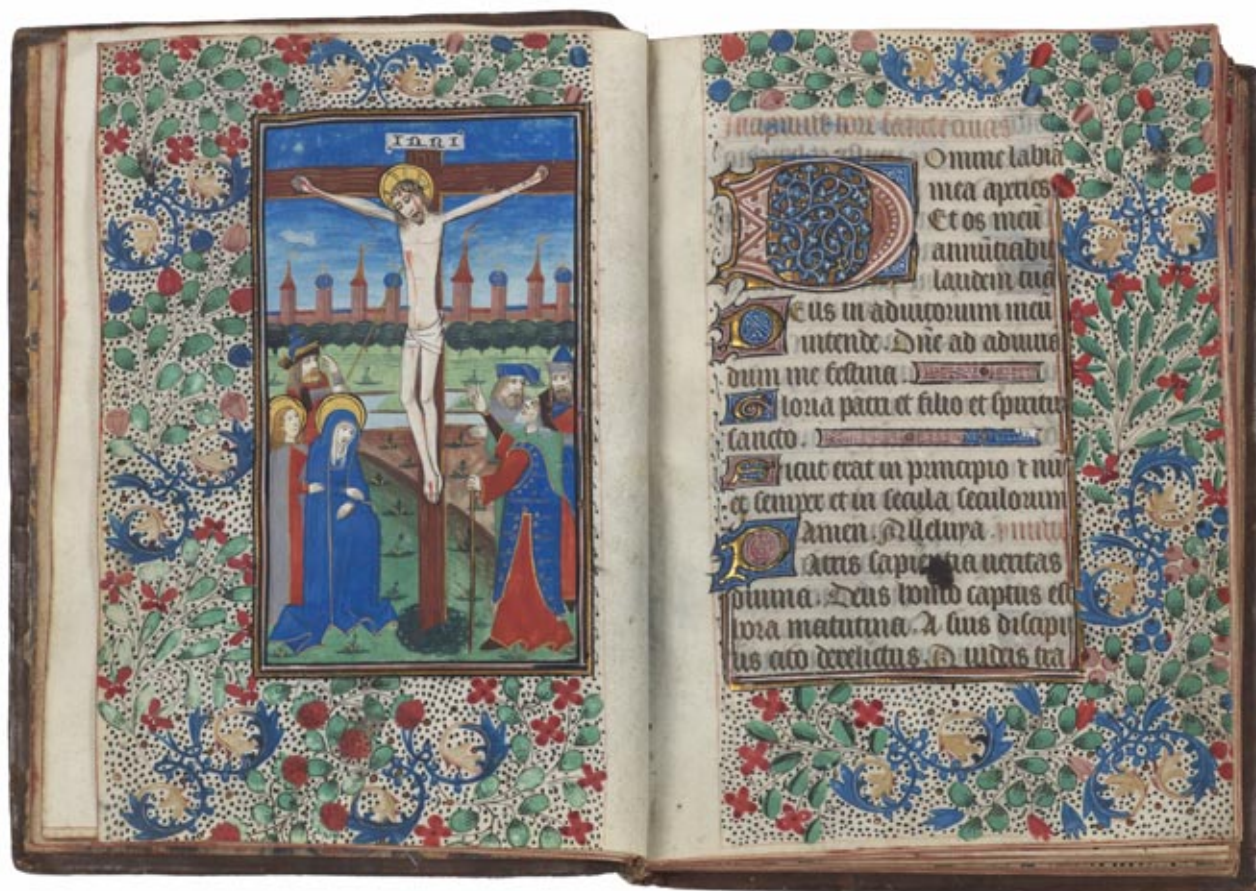 INRI
Domine labia
mea aperies
Et os meū
annūciabit
laudem tuā
Deus in adiutorium meū
intende. Dn̄e ad adiuuā
dum me festina.
Gloria patri et filio et spiritui
sancto.
Sicut erat in principio et nūc
et semper et in secula seculorum
Amen. Alleluya.
Patris sapientia ueritas
diuina. Deus homo captus est
hora matutina. A suis discipu
lis cito derelictus. A iudeis tra